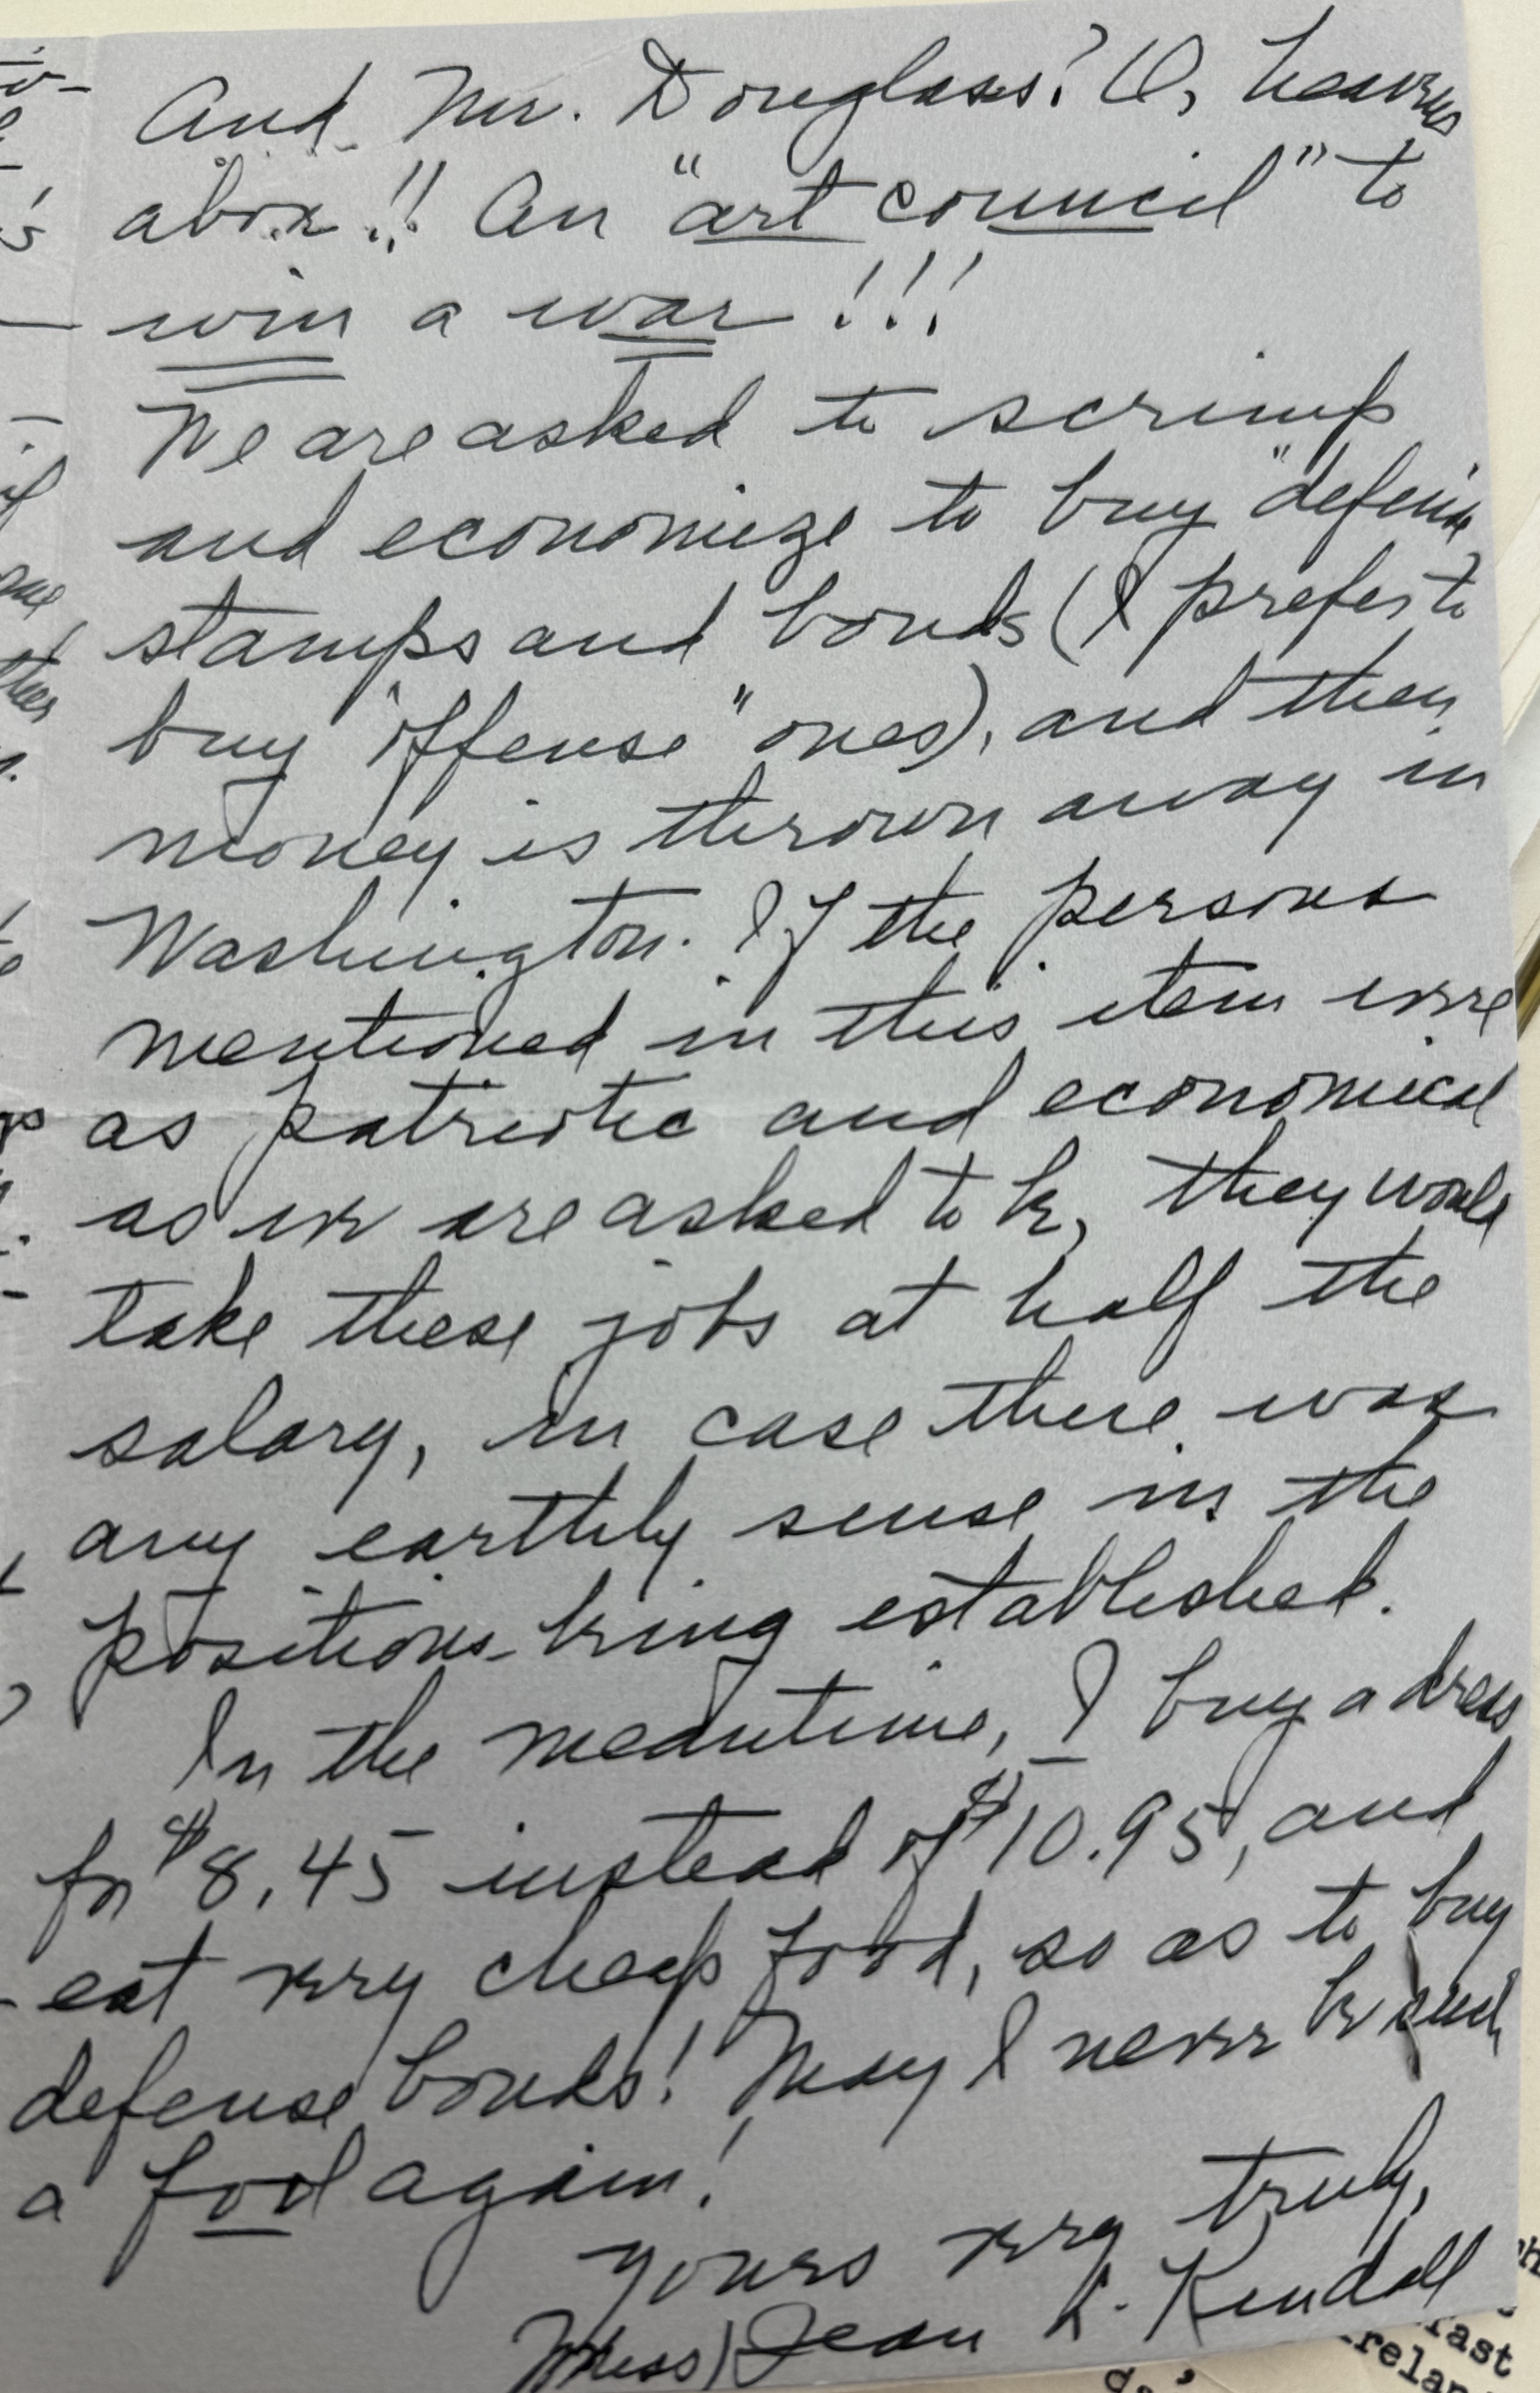 And Mr. Douglass? O, heavens
above!! An "art council" to
win a war!!!
We are asked to scrimp
and economize to buy "defense
stamps and bonds (I prefer to
buy "offense" ones), and then
money is thrown away in
Washington. If the persons
mentioned in this item were
as patriotic and economical
as we are asked to be, they would
take these jobs at half the
salary, in case there was
any earthly sense in the
positions being established.
In the meantime, I buy a dress
for $8.45 instead of $10.95, and
eat very cheap food, so as to buy
defense bonds! May I never be such
a fool again!
Yours very truly,
(Miss) Jean L. Kendall